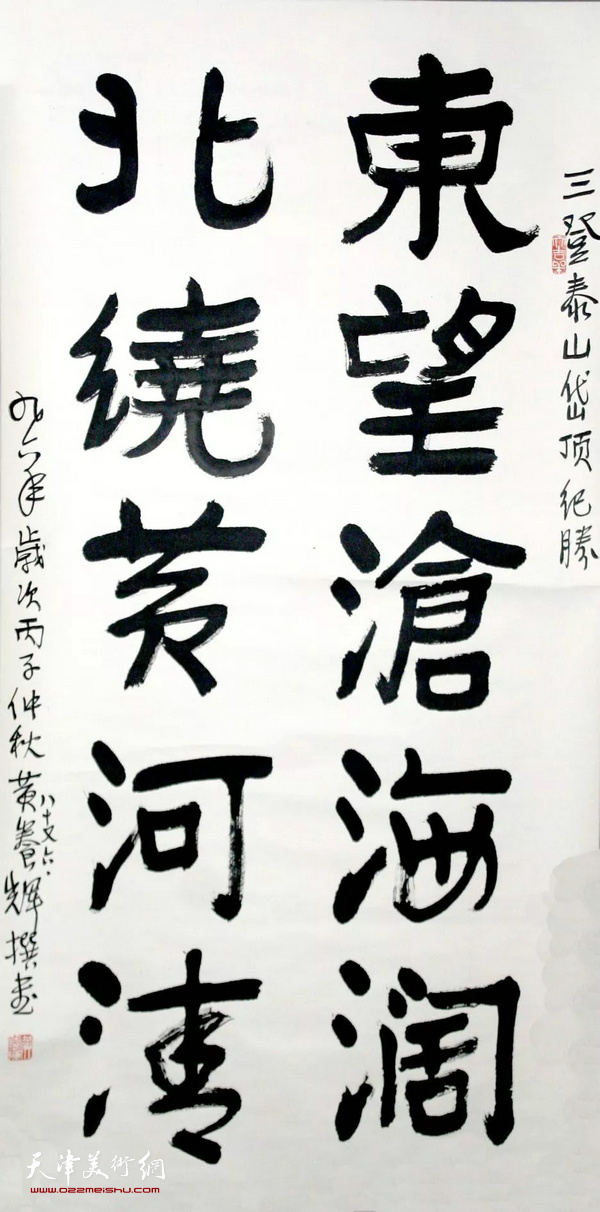 三登泰山岱顶纪勝
東望滄海阔
北繞黄河清
九六年歲次丙子仲秋黄養輝撰書
八十又六
天津美術網
www.022meishu.com